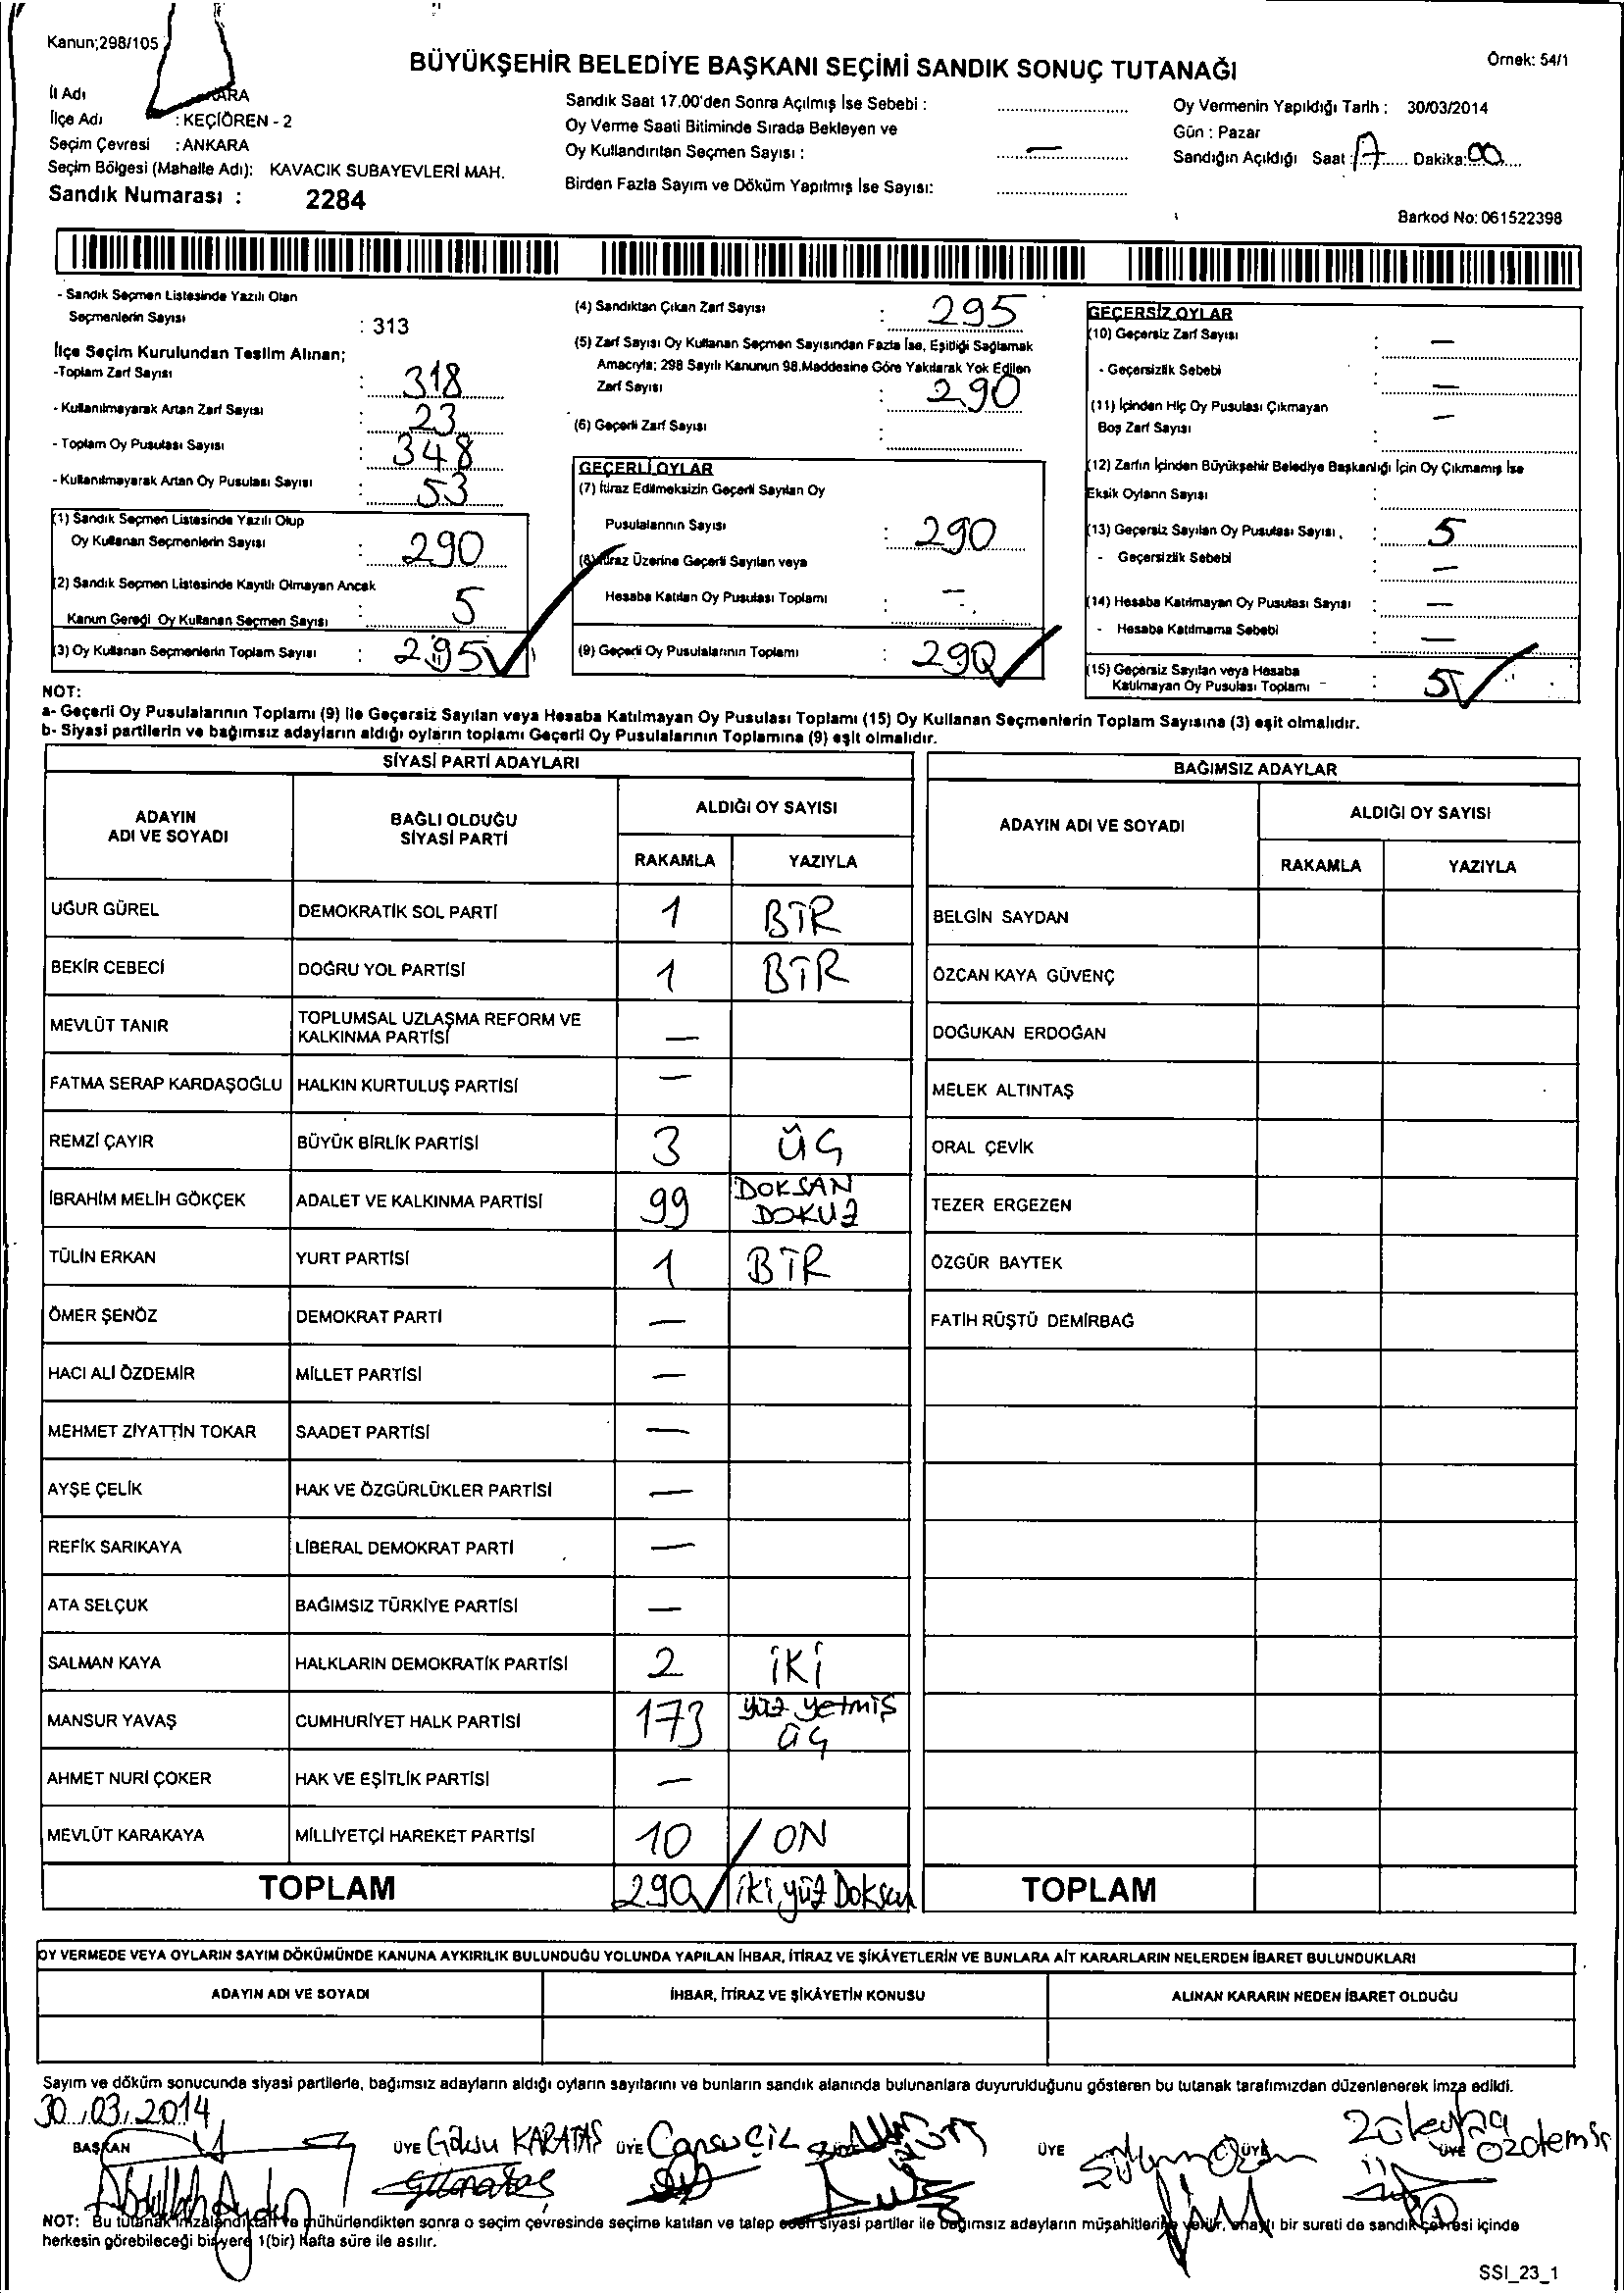 Kanun;298/105
BÜYÜKŞEHİR BELEDİYE BAŞKANI SEÇİMİ SANDIK SONUÇ TUTANAĞI
Örnek: 54/1
İl Adı ARA
İlçe Adı : KEÇİÖREN - 2
Seçim Çevresi : ANKARA
Seçim Bölgesi (Mahalle Adı): KAVACIK SUBAYEVLERİ MAH.
Sandık Numarası : 2284
Sandık Saat 17.00'den Sonra Açılmış İse Sebebi :
Oy Verme Saati Bitiminde Sırada Bekleyen ve
Oy Kullandırılan Seçmen Sayısı : —
Birden Fazla Sayım ve Döküm Yapılmış İse Sayısı:
Oy Vermenin Yapıldığı Tarih : 30/03/2014
Gün : Pazar
Sandığın Açıldığı Saat : 17 Dakika: 00
Barkod No: 061522398
- Sandık Seçmen Listesinde Yazılı Olan
Seçmenlerin Sayısı : 313
İlçe Seçim Kurulundan Teslim Alınan;
-Toplam Zarf Sayısı : 318
- Kullanılmayarak Artan Zarf Sayısı : 23
- Toplam Oy Pusulası Sayısı : 348
- Kullanılmayarak Artan Oy Pusulası Sayısı : 53
(1) Sandık Seçmen Listesinde Yazılı Olup
Oy Kullanan Seçmenlerin Sayısı : 290
(2) Sandık Seçmen Listesinde Kayıtlı Olmayan Ancak
Kanun Gereği Oy Kullanan Seçmen Sayısı : 5
(3) Oy Kullanan Seçmenlerin Toplam Sayısı : 295
(4) Sandıktan Çıkan Zarf Sayısı : 295
(5) Zarf Sayısı Oy Kullanan Seçmen Sayısından Fazla İse, Eşitliği Sağlamak
Amacıyla; 298 Sayılı Kanunun 98.Maddesine Göre Yakılarak Yok Edilen
Zarf Sayısı : 290
(6) Geçerli Zarf Sayısı :
GEÇERLİ OYLAR
(7) İtiraz Edilmeksizin Geçerli Sayılan Oy
Pusulalarının Sayısı : 290
(8) İtiraz Üzerine Geçerli Sayılan veya
Hesaba Katılan Oy Pusulası Toplamı : —
(9) Geçerli Oy Pusulalarının Toplamı : 290
GEÇERSİZ OYLAR
(10) Geçersiz Zarf Sayısı : —
- Geçersizlik Sebebi : —
(11) İçinden Hiç Oy Pusulası Çıkmayan
Boş Zarf Sayısı : —
(12) Zarfın İçinden Büyükşehir Belediye Başkanlığı İçin Oy Çıkmamış İse
Eksik Oyların Sayısı :
(13) Geçersiz Sayılan Oy Pusulası Sayısı : 5
- Geçersizlik Sebebi : —
(14) Hesaba Katılmayan Oy Pusulası Sayısı : —
- Hesaba Katılmama Sebebi : —
(15) Geçersiz Sayılan veya Hesaba
Katılmayan Oy Pusulası Toplamı : 5
NOT:
a- Geçerli Oy Pusulalarının Toplamı (9) ile Geçersiz Sayılan veya Hesaba Katılmayan Oy Pusulası Toplamı (15) Oy Kullanan Seçmenlerin Toplam Sayısına (3) eşit olmalıdır.
b- Siyasi partilerin ve bağımsız adayların aldığı oyların toplamı Geçerli Oy Pusulalarının Toplamına (9) eşit olmalıdır.
SİYASİ PARTİ ADAYLARI
ADAYIN ADI VE SOYADI
BAĞLI OLDUĞU SİYASİ PARTİ
ALDIĞI OY SAYISI
RAKAMLA YAZIYLA
UĞUR GÜREL DEMOKRATİK SOL PARTİ 1 BİR
BEKİR CEBECİ DOĞRU YOL PARTİSİ 1 BİR
MEVLÜT TANIR TOPLUMSAL UZLAŞMA REFORM VE KALKINMA PARTİSİ —
FATMA SERAP KARDAŞOĞLU HALKIN KURTULUŞ PARTİSİ —
REMZİ ÇAYIR BÜYÜK BİRLİK PARTİSİ 3 ÜÇ
İBRAHİM MELİH GÖKÇEK ADALET VE KALKINMA PARTİSİ 99 DOKSAN DOKUZ
TÜLİN ERKAN YURT PARTİSİ 1 BİR
ÖMER ŞENÖZ DEMOKRAT PARTİ —
HACI ALİ ÖZDEMİR MİLLET PARTİSİ —
MEHMET ZİYATTİN TOKAR SAADET PARTİSİ —
AYŞE ÇELİK HAK VE ÖZGÜRLÜKLER PARTİSİ —
REFİK SARIKAYA LİBERAL DEMOKRAT PARTİ —
ATA SELÇUK BAĞIMSIZ TÜRKİYE PARTİSİ —
SALMAN KAYA HALKLARIN DEMOKRATİK PARTİSİ 2 İKİ
MANSUR YAVAŞ CUMHURİYET HALK PARTİSİ 173 yüz yetmiş ÜÇ
AHMET NURİ ÇOKER HAK VE EŞİTLİK PARTİSİ —
MEVLÜT KARAKAYA MİLLİYETÇİ HAREKET PARTİSİ 10 ON
TOPLAM 290 iki yüz Doksan
BAĞIMSIZ ADAYLAR
ADAYIN ADI VE SOYADI
ALDIĞI OY SAYISI
RAKAMLA YAZIYLA
BELGİN SAYDAN
ÖZCAN KAYA GÜVENÇ
DOĞUKAN ERDOĞAN
MELEK ALTINTAŞ
ORAL ÇEVİK
TEZER ERGEZEN
ÖZGÜR BAYTEK
FATİH RÜŞTÜ DEMİRBAĞ
TOPLAM
OY VERMEDE VEYA OYLARIN SAYIM DÖKÜMÜNDE KANUNA AYKIRILIK BULUNDUĞU YOLUNDA YAPILAN İHBAR, İTİRAZ VE ŞİKÂYETLERİN VE BUNLARA AİT KARARLARIN NELERDEN İBARET BULUNDUKLARI
ADAYIN ADI VE SOYADI
İHBAR, İTİRAZ VE ŞİKÂYETİN KONUSU
ALINAN KARARIN NEDEN İBARET OLDUĞU
Sayım ve döküm sonucunda siyasi partilerle, bağımsız adayların aldığı oyların sayılarını ve bunların sandık alanında bulunanlara duyurulduğunu gösteren bu tutanak tarafımızdan düzenlenerek imza edildi.
30.03.2014
BAŞKAN ÜYE Göksu KARATAŞ ÜYE Cansu ÇİL ÜYE ÜYE ÜYE
Abdullah Aydın
NOT: Bu tutanak imzalandıktan ve mühürlendikten sonra o seçim çevresinde seçime katılan ve talep eden siyasi partiler ile bağımsız adayların müşahitlerine verilir, onaylı bir sureti de sandık çevresi içinde
herkesin görebileceği bir yere 1(bir) hafta süre ile asılır.
SSI_23_1